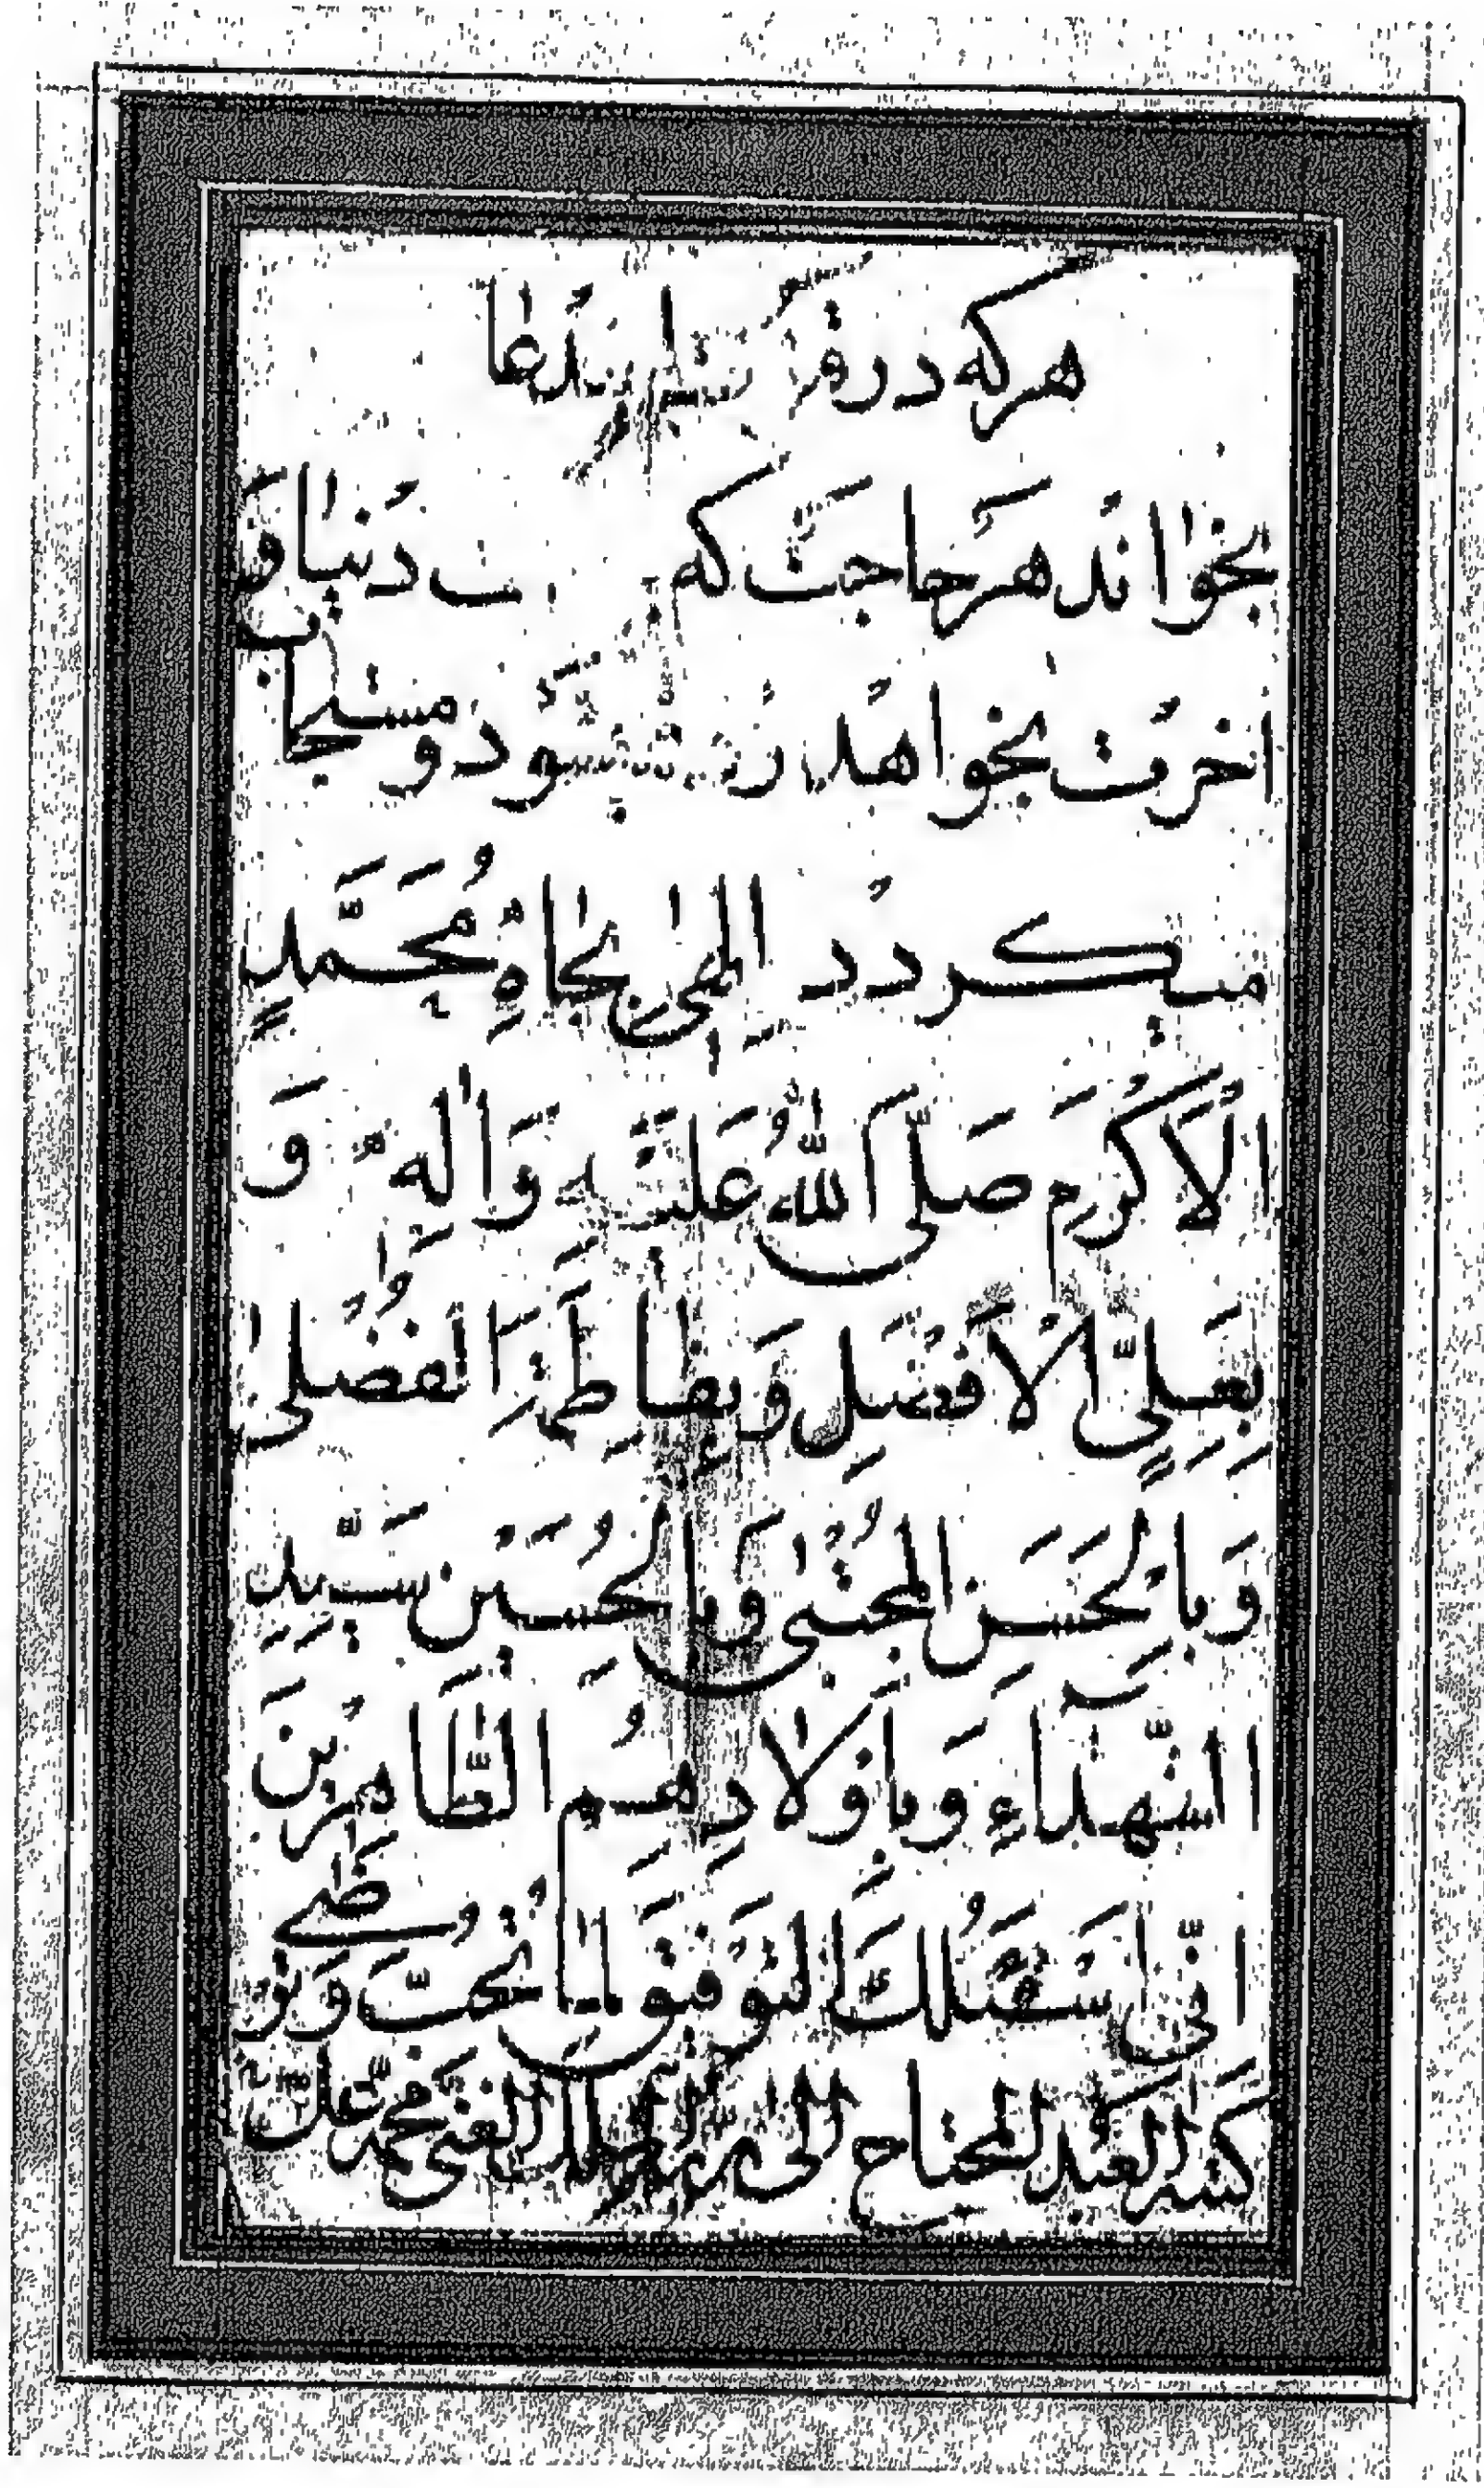 هر که در ... این دُعا
بخواند هر حاجت که ... دُنیا و
اخرت بخواهد ... شود و مستجاب
میکردد اِلهٰی بجاهِ مُحَمَّدٍ
الْاَکْرَمِ صَلَّی اللّٰهُ عَلَیْهِ وَاٰلِهِ وَ
بِعَلِیٍّ الْاَفْضَلِ وَ بِفاطِمَةَ الفُضْلیٰ
وَ بِالحَسَنِ المُجْتَبیٰ وَ بِالحُسَیْنِ سَیِّدِ
الشُّهَدآءِ وَ بِاَوْلادِهِمِ الطَّاهِرِینَ
اِنّی اَسْئَلُكَ التَّوْفیقَ لِما تُحِبُّ وَ تَرْضٰی
کتبه العبد المحتاج الی ... الغنی محمد علی